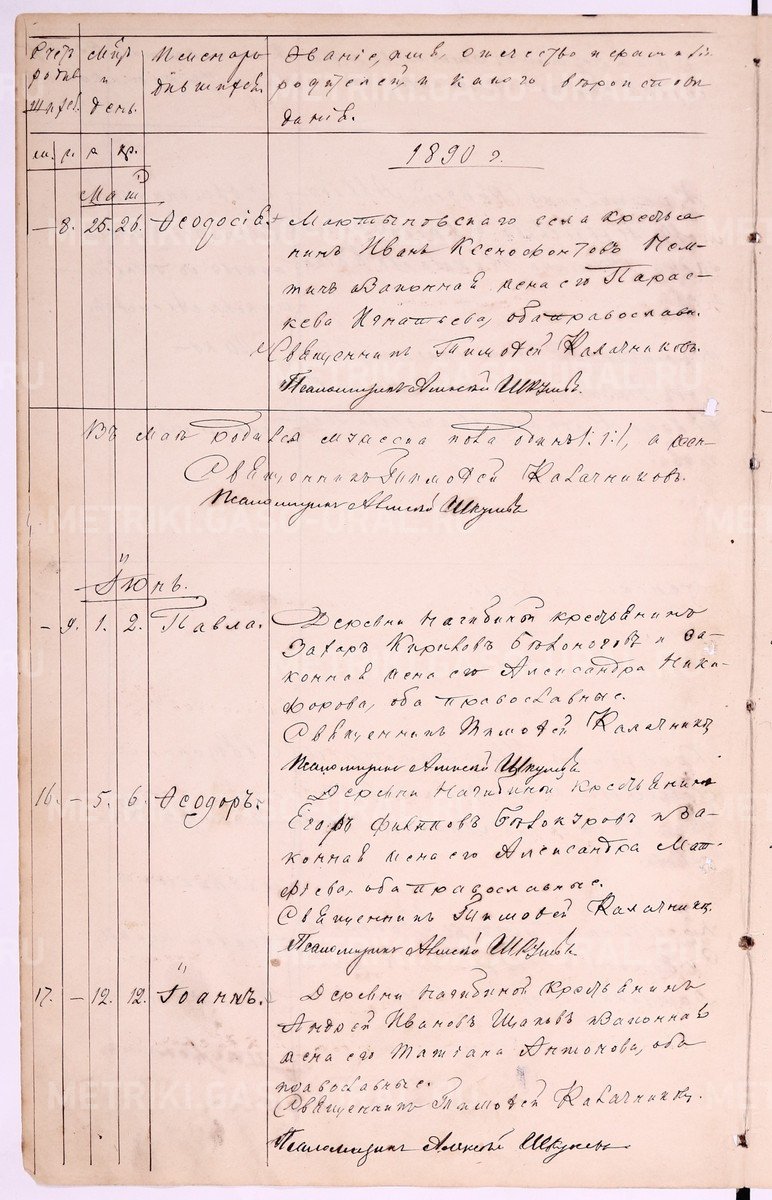 Счетъ родив шихся.
Мѣц. и день.
Имена родившихся.
Званіе, имя, отчество и фамилія
родителей, и какого вѣроисповѣ
данія.
м. ж. р. кр.
1890 г.
Маій
— 8. 25. 26. Ѳеодосія. Мартыновскаго села крестья
нинъ Иванъ Ксенофонтовъ
законная жена его Парас-
кева Игнатьева, оба православн.
Священникъ Тимоѳей Калачниковъ.
Псаломщикъ Алексѣй Шкулевъ
Въ маѣ родился мужеска пола одинъ /: 1 :/, а жен-
Священникъ Тимоѳей Калачниковъ.
Псаломщикъ Алексѣй Шкулевъ
Іюнь.
— 9. 1. 2. Павла. Деревни Нагибиной крестьянинъ
Захаръ Кириловъ Бѣлоноговъ и за-
конная жена его Александра Ники-
форова, оба православные.
Священникъ Тимоѳей Калачник
Псаломщикъ Алексѣй Шкулевъ
16. — 5. 6. Ѳеодоръ. Деревни Нагибиной крестьянинъ
Егоръ Филиповъ и за-
конная жена его Александра Мат-
фіева, оба православные.
Священникъ Тимоѳей Калачник.
Псаломщикъ Алексѣй Шкулевъ
17. — 12. 12. Іоаннъ. Деревни Нагибиной крестьянинъ
Андрей Ивановъ Щаповъ и законная
жена его Татіана Антонова, оба
православные.
Священникъ Тимоѳей Калачников.
Псаломщикъ Алексѣй Шкулевъ